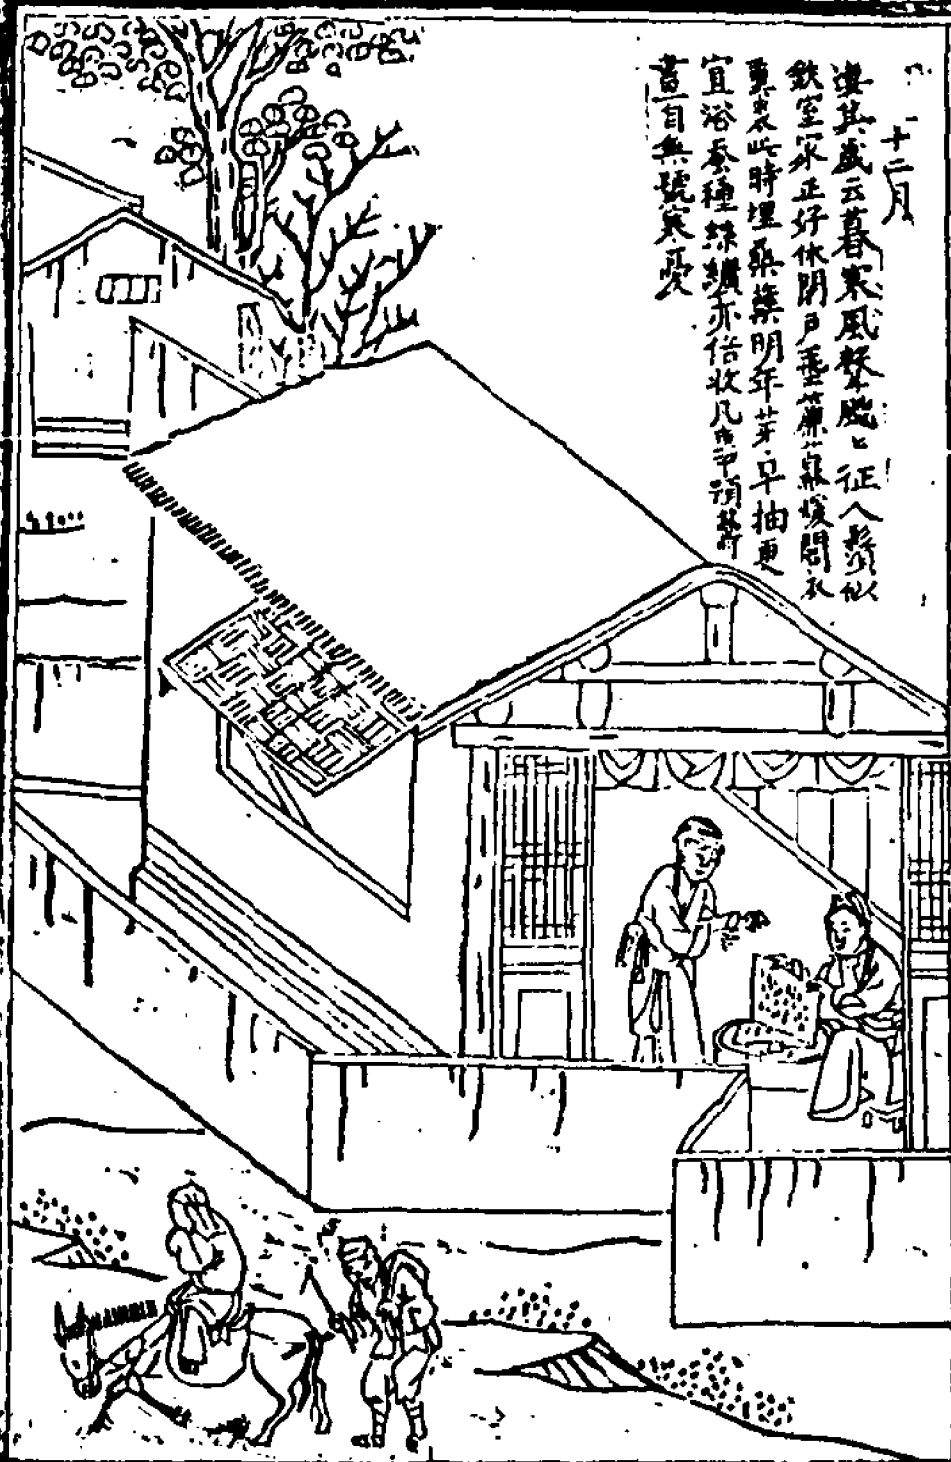 十二月
凄其歲云暮寒風緊颼〻征人鬚似
鉄室家正好休閉戶垂簾煖閣衣
重裘此時埋桑葉明年芽早抽更
宜浴蚕種絲纊亦倍收凡事預籌
畫自無號寒憂